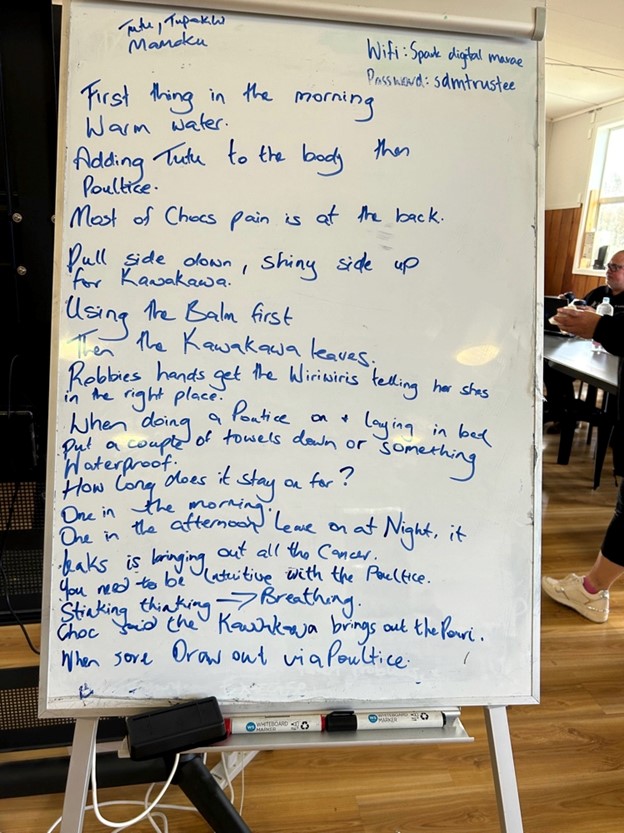 Tutu, Tupakihi
Mamaku
Wifi: Spark digital marae
Password: sdmtrustee
First thing in the morning
Warm water.
Adding Tutu to the body then
Poultice.
Most of Chocs pain is at the back.
Dull side down, shiny side up
for Kawakawa.
Using the Balm first
Then the Kawakawa leaves.
Robbies hands get the Wiriwiris telling her shes
in the right place.
When doing a Poultice on + laying in bed
Put a couple of towels down or something
Waterproof.
How long does it stay on for?
One in the morning.
One in the afternoon Leave on at Night, it
leaks is bringing out all the Cancer.
You need to be Intuitive with the Poultice.
Stinking thinking → Breathing.
Choc said the Kawakawa brings out the Pouri.
When sore Draw out via Poultice.
WHITEBOARD MARKER
WHITEBOARD MARKER